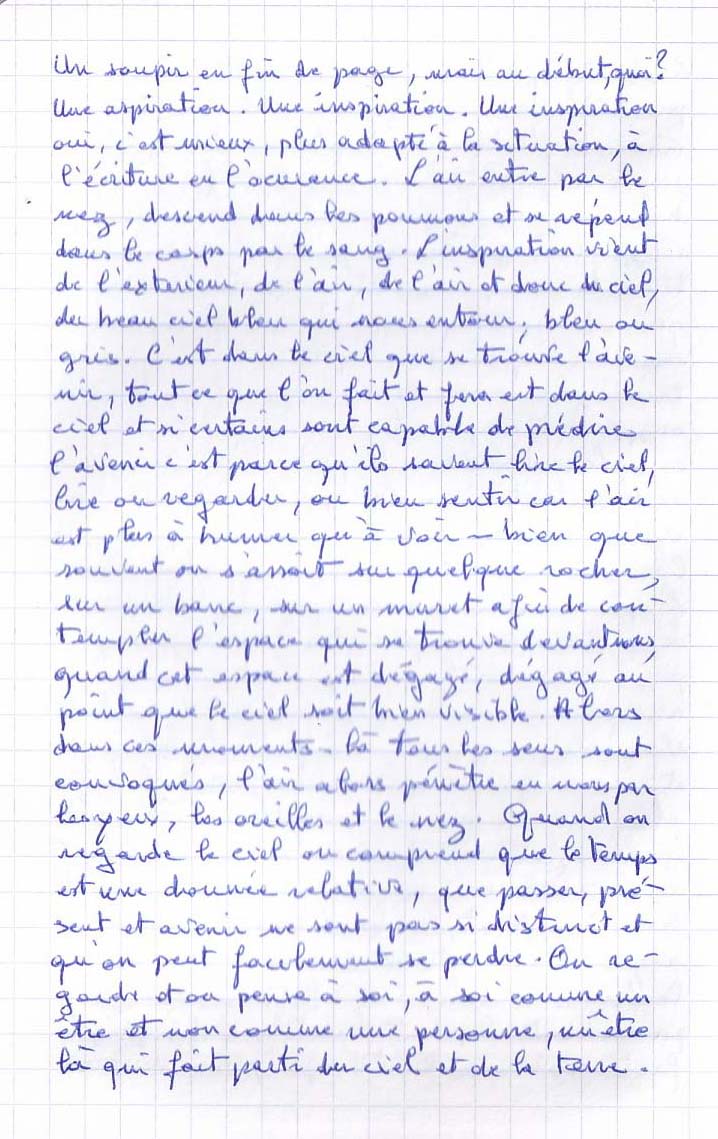 Un soupir en fin de page, mais au début, quoi?
Une aspiration. Une inspiration. Une inspiration
oui, c'est mieux, plus adapté à la situation, à
l'écriture en l'ocurance. L'air entre par le
nez, descend dans les poumons et se répend
dans le corps par le sang. L'inspiration vient
de l'exterieur, de l'air, de l'air et donc du ciel,
du beau ciel bleu qui nous entour, bleu ou
gris. C'est dans le ciel que se trouve l'ave-
nir, tout ce que l'on fait et fera est dans le
ciel et si certains sont capable de prédire
l'avenir c'est parce qu'ils savent lire le ciel,
lire ou regarder, ou bien sentir car l'air
est plus à humer qu'à voir – bien que
souvent on s'assoit sur quelque rocher,
sur un banc, sur un muret afin de con-
templer l'espace qui se trouve devant nous,
quand cet espace est dégagé, dégagé au
point que le ciel soit bien visible. Alors
dans ces moments-là tous les sens sont
convoqués, l'air alors pénètre en nous par
les yeux, les oreilles et le nez. Quand on
regarde le ciel on comprend que le temps
est une donnée relative, que passer, pré-
sent et avenir ne sont pas si distinct et
qu'on peut facilement se perdre. On re-
garde et on pense à soi, à soi comme un
être et non comme une personne, un être
là qui fait parti du ciel et de la terre.